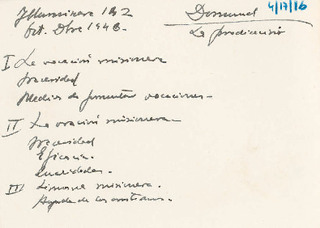 Illuminare 142
Set. Dbre 1948.
Domund
4/17/16
La predicación
I La vocación misionera
Necesidad
Medios de fomentar vocaciones.
II La oración misionera
Necesidad
Eficacia.
Cualidades.
III Limosna misionera.
Ayuda de los cristianos.